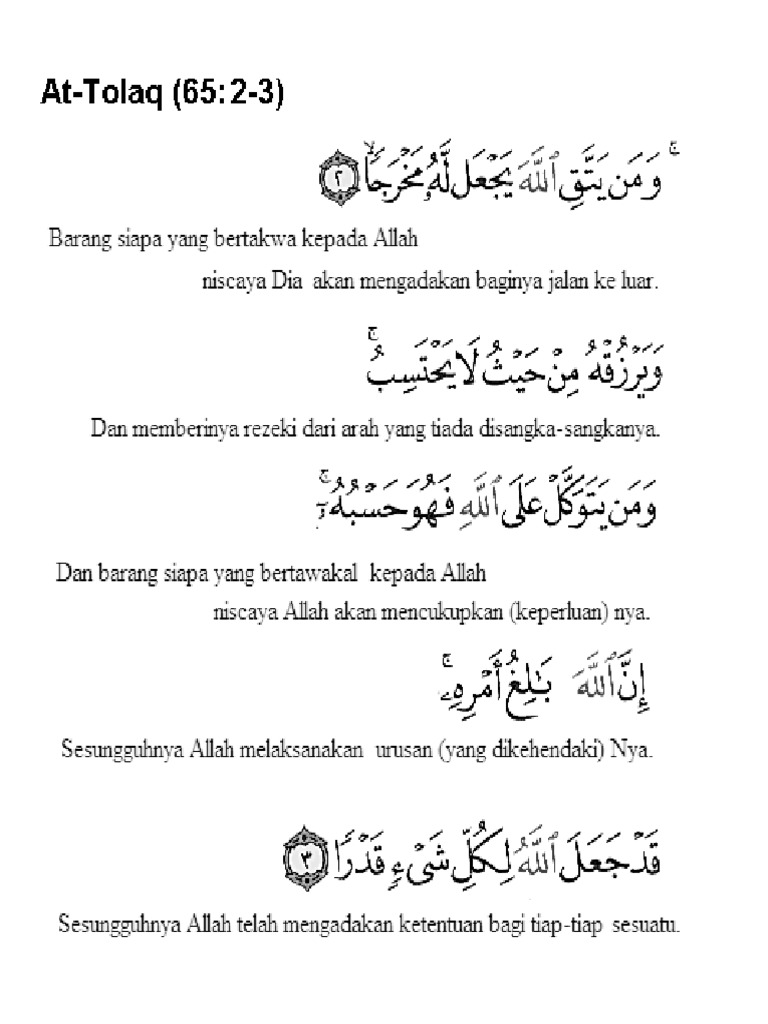 At-Tolaq (65:2-3)
ۚ وَمَن يَتَّقِ ٱللَّهَ يَجْعَل لَّهُۥ مَخْرَجًۭا ۙ ٢
Barang siapa yang bertakwa kepada Allah
niscaya Dia akan mengadakan baginya jalan ke luar.
وَيَرْزُقْهُ مِنْ حَيْثُ لَا يَحْتَسِبُ ۚ
Dan memberinya rezeki dari arah yang tiada disangka-sangkanya.
وَمَن يَتَوَكَّلْ عَلَى ٱللَّهِ فَهُوَ حَسْبُهُۥٓ ۚ
Dan barang siapa yang bertawakal kepada Allah
niscaya Allah akan mencukupkan (keperluan) nya.
إِنَّ ٱللَّهَ بَـٰلِغُ أَمْرِهِۦ ۚ
Sesungguhnya Allah melaksanakan urusan (yang dikehendaki) Nya.
قَدْ جَعَلَ ٱللَّهُ لِكُلِّ شَىْءٍۢ قَدْرًۭا ٣
Sesungguhnya Allah telah mengadakan ketentuan bagi tiap-tiap sesuatu.